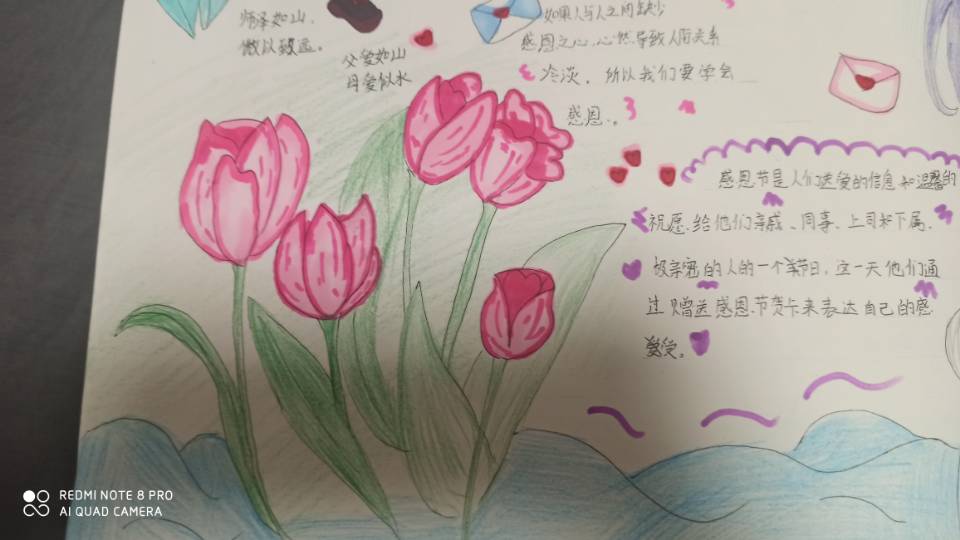 师泽如山，
微以致远。
父爱如山
母爱似水
如果人与人之间缺少
感恩之心，必然导致人际关系
冷淡，所以我们要学会
感恩。
感恩节是人们送爱的信息和温馨的
祝愿，给他们亲戚、同事、上司和下属，
极亲密的人的一个节日，这一天他们通
过赠送感恩节贺卡来表达自己的感
受。
REDMI NOTE 8 PRO
AI QUAD CAMERA